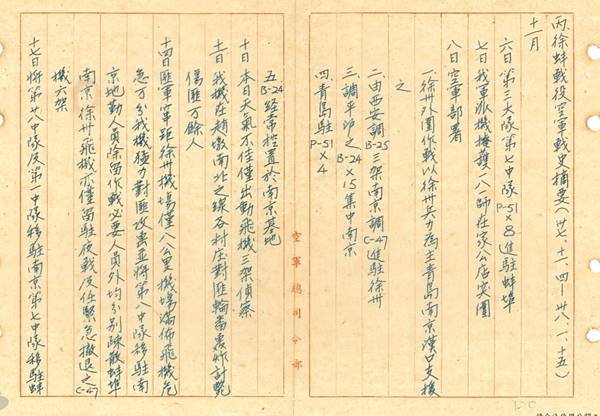 丙、徐蚌戰役空軍戰史摘要(卅七、十一、四—卅八、一、十五)
十一月
六日 第三大隊第七中隊P-51×8進駐蚌埠
七日 我軍派機掩護一八一師在家公店突圍
八日 空軍部署
一、徐卅外圍作戰以徐卅兵力為主青島南京漢口支援
之
二、由西安調B-25三架南京調C-47進駐徐卅
三、調平滬之B-24×15集中南京
四、青島駐P-51×4
空軍總司令部
五、B-24經常控置於南京基地
十日 本日天氣不佳僅出動飛機三架偵察
十一日 我機在趙墩南北之線各村庄對匪輪番轟炸計斃
傷匪万餘人
十四日 匪軍竄距徐卅機場僅八公里機場滿佈飛機危
急万分我機極力對匪攻轟並將第八中隊移駐南
京地勤人員除留作戰必要人員外均分別疎散蚌埠
南京徐卅飛機亦僅留駐夜戰及任緊急撤退之C-47
機六架
十七日 將第廿八中隊及第一中隊移駐南京第七中隊移駐蚌